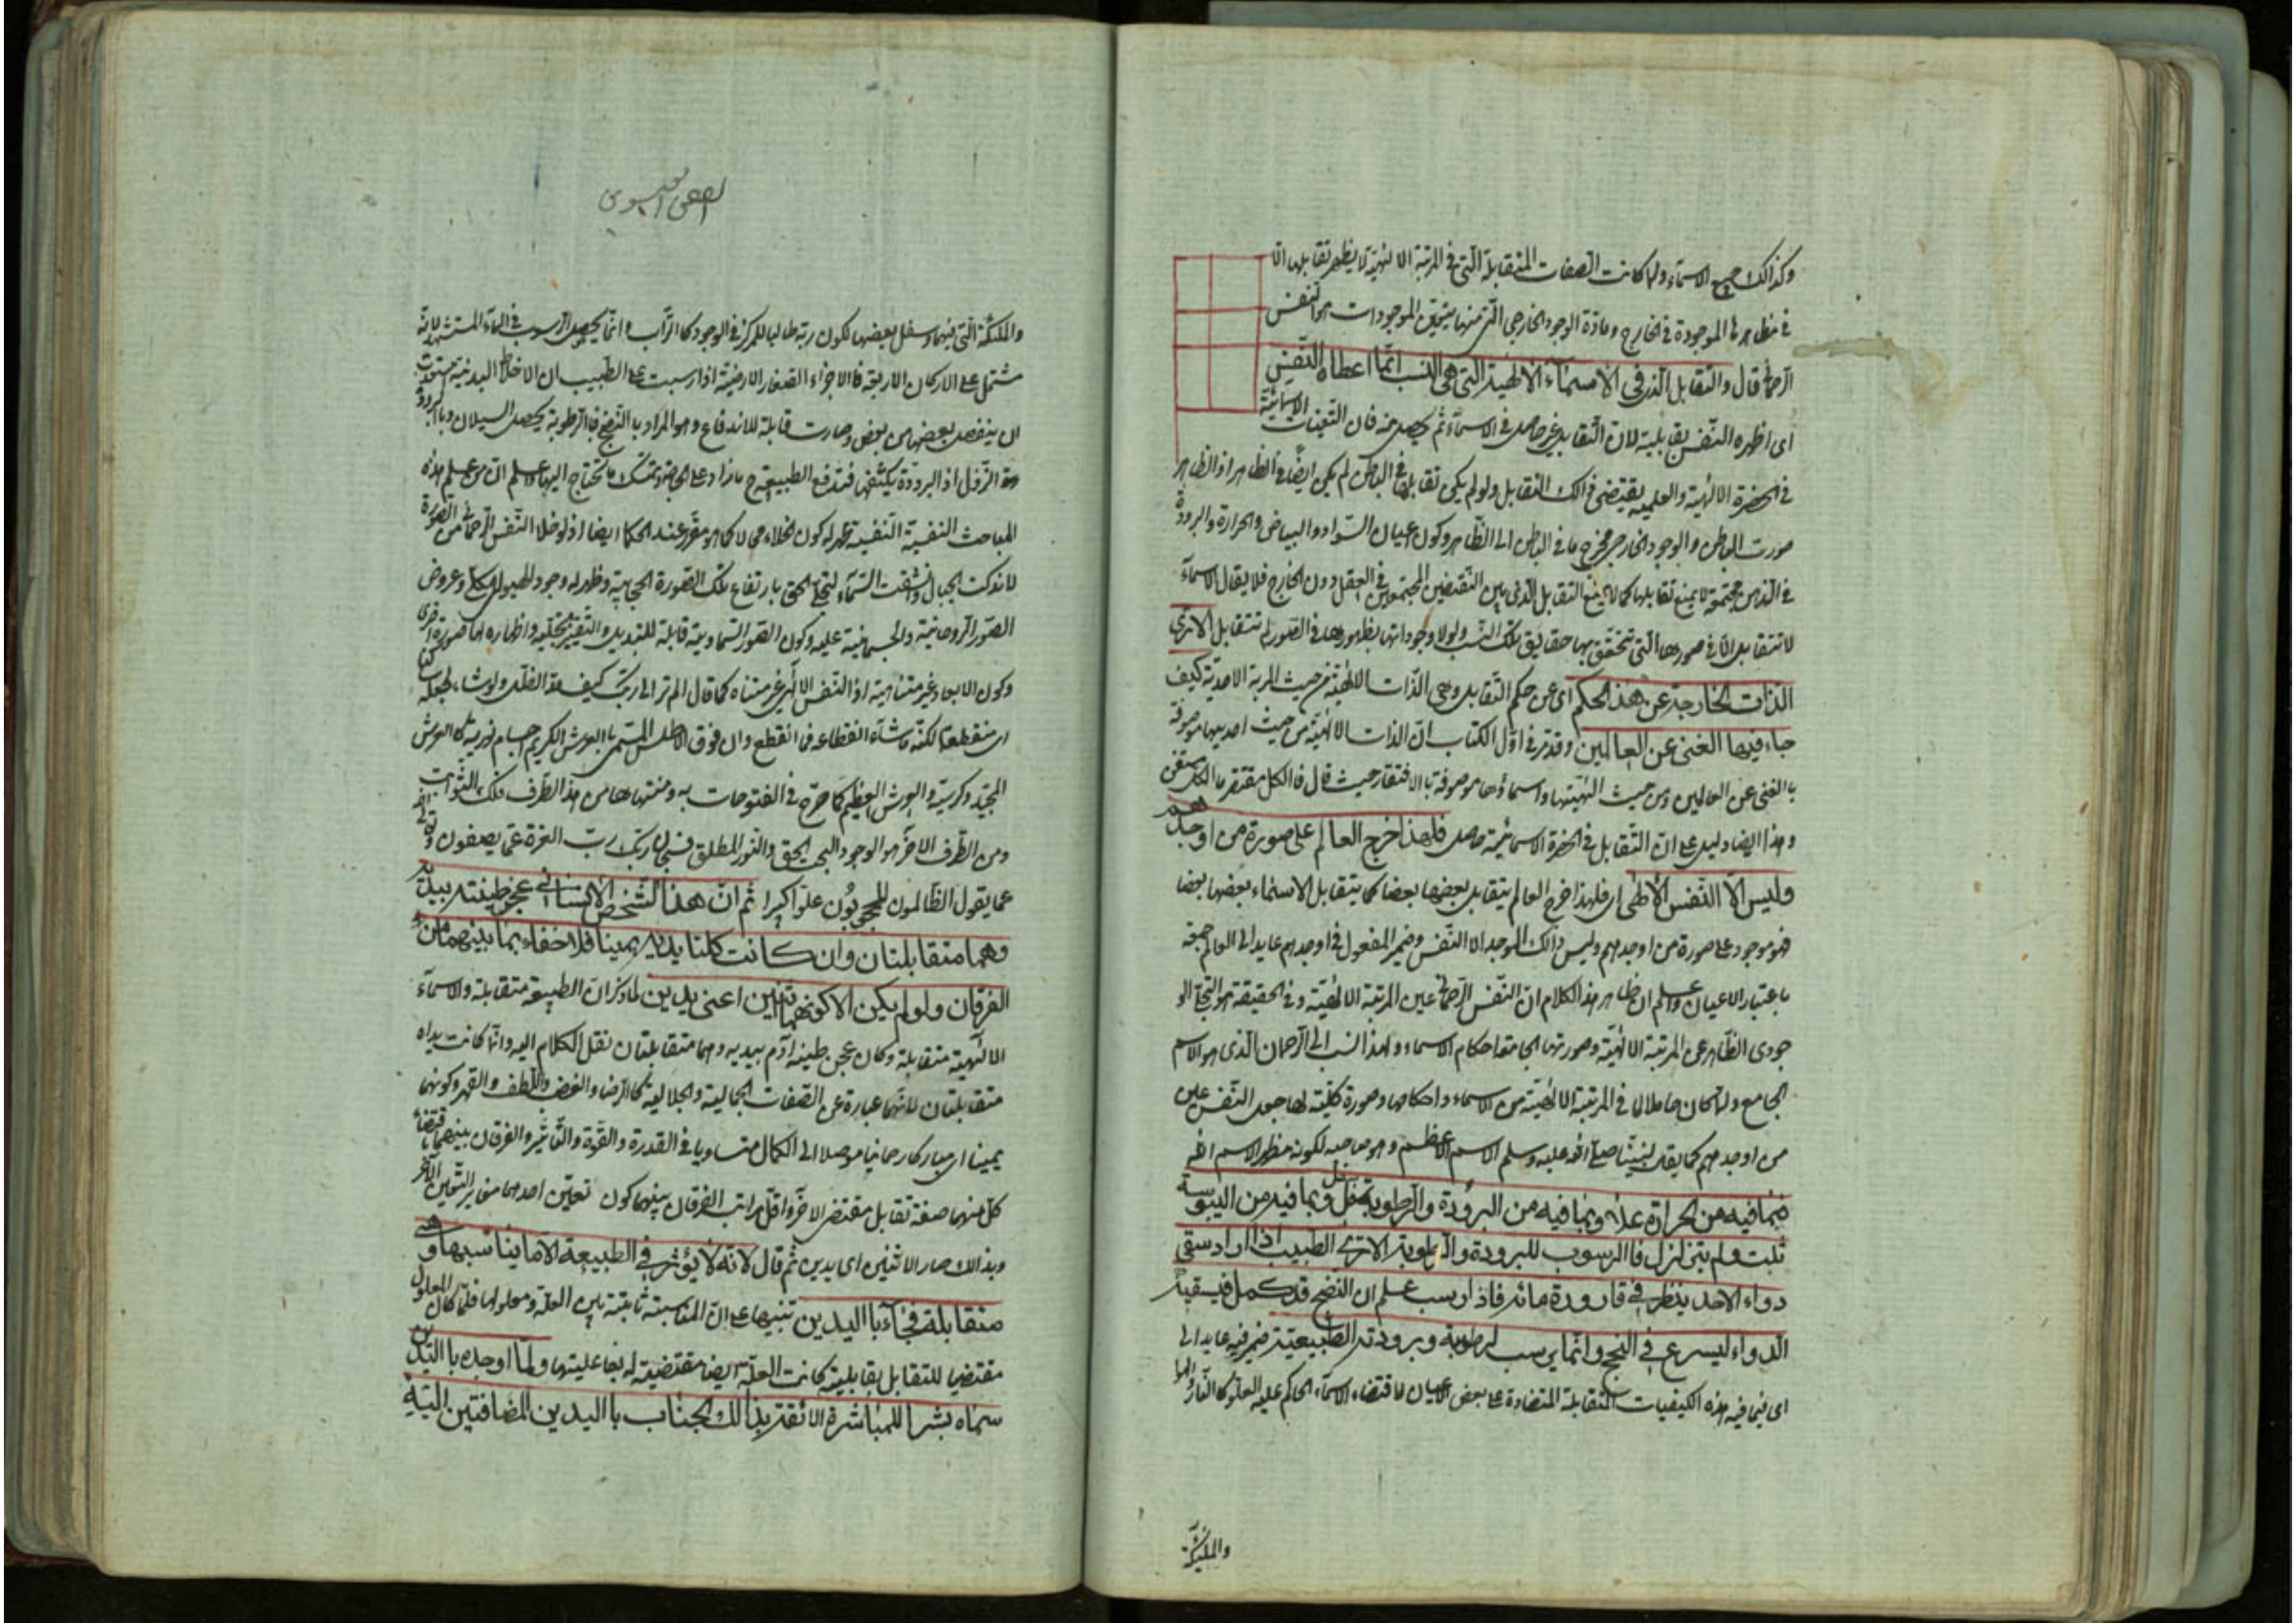 وكذالك جميع الاسماء ولما كانت الصفات المتقابلة التى فى المرتبة الالهية لا يظهر تقابلها الا
فى مظاهرها الموجودة فى الخارج ومادة الوجود الخارجى التى منها يتعين الموجودات هو النفس
الرحمانى قال والتقابل الذى فى الاسماء الالهية التى هى النسب انما اعطاه النفس
اى اظهره النفس بقابلية لان التقابل غير حاصل فى الاسماء ثم يحصل منه فان التعينات الاسمائية
فى الحضرة الالهية والعلمية يقتضى ذالك التقابل ولو لم يكن تقابلها فى الباطن لم يكن ايضا فى الظاهر اذ الظاهر
صورت الباطن والوجود الخارجى مخرج ما فى الباطن الى الظاهر وكون اعيان السواد والبياض والحرارة والبرودة
فى الذهن مجتمعة لا يمنع تقابلها كما لا يمنع التقابل الذى بين النقيضين المجتمعين فى العقل دون الخارج فلا يقال الاسماء
لا تتقابل الا فى صورها التى تتحقق بها حقايق تلك النسب ولولا وجوداتها بظهورها فى الصور لم تتقابل الا ترى
الذات الخارجة عن هذا الحكم اى عن حكم التقابل وهى الذات الالهية من حيث المرتبة الاحدية كيف
جاء فيها الغنى عن العالمين وقد مر فى اول الكتاب ان الذات الالهية من حيث احديتها موصوفة
با الغنى عن العالمين ومن حيث الهيتها واسمائها موصوفة با الافتقار حيث قال فا الكل مفتقر ما الكل مستغن
وهذا ايضا دليل على ان التقابل فى الحضرة الاسمائية حاصل فلهذا خرج العالم على صورة من اوجدهم
وليس الا النفس الالهى اى فلهذا خرج العالم يتقابل بعضها بعضا كما يتقابل الاسماء بعضها بعضا
فهو موجود على صورة من اوجدهم وليس ذالك الموجد الا النفس وضمير المفعول فى اوجدهم عايد الى العالم جمعه
باعتبار الاعيان واعلم ان ظاهر هذا الكلام ان النفس الرحمانى عين المرتبة الالهية وفى الحقيقة هو التجلى الو
جودى الظاهر عن المرتبة الالهية وصورتها الجامعة احكام الاسماء ولهذا انسب الى الرحمان الذى هو الاسم
الجامع ولما كان حاملا لما فى المرتبة الالهية من الاسماء واحكامها وصورة كلية لها جعل النفس عين
من اوجدهم كما يقال لنبينا صلى الله عليه وسلم الاسم الاعظم وهو صاحبه لكونه مظهر الاسم الله
فبما فيه من الحرارة علا وبما فيه من البرودة والرطوبة سفل وبما فيه من اليبوسة
ثبت ولم يتزلزل فا الرسوب للبرودة والرطوبة الا ترى الطبيب اذا اراد سقى
دواء لاحد ينظر فى قارورة مائه فاذا رسب علم ان النضج قد كمل فيسقيه
الدواء ليسرع فى النجح وانما يرسب لرطوبة وبرودته الطبيعية ضمير فيه عايد الى
اى فيما فيه هذه الكيفيات المتقابلة المتضادة على بعض الاعيان لاقتضاء الاسماء الحاكم عليه العلو كا النار والهوا
والملئكة
الفص العيسوى
والملئكة التى فيهما وسفل بعضها لكون ربه طالبا للمركز فى الوجود كا التراب وانما يحصل الرسوب فى الماء المستشهد لانه
مشتمل على الاركان الاربعة فا الاجزاء الصغار الارضية اذا رسبت علم الطبيب ان الاخلاط البدنية استعدت
ان ينفصل بعضها من بعض وصارت قابلة للاندفاع وهو المراد با النضج فا الرطوبة يحصل السيلان وبا البرودة
النزول اذ البرودة يكثفه فتدفع الطبيعة ما زاد على الحاجة وتمسك ما تحتاج اليها واعلم ان من علم هذه
المباحث النفسية النفيسة ظهر له كون الخلاء محالا كما هو مقرر عند الحكما ايضا اذ لو خلا النفس الرحمانى من الصورة
لاندكت الجبال وانشقت السماء لتجلى الحق بارتفاع تلك الصورة الحجابية وظهر له وجود الهيولى الكلى وعروض
الصور الروحانية والجسمانية عليه وكون الصور السماوية قابلة للتبديل والتغيير بتجليه واظهاره لها صورة اخرى
وكون الابعاد غير متناهية اذ النفس الالهى غير متناه كما قال الم تر الى ربك كيف مد الظل ولو شاء لجعله ساكنا
اى منقطعا لكنه ما شاء انقطاعه فما انقطع وان فوق الاطلس المسمى با العرش الكريم اجسام نورية كا العرش
المجيد وكرسيه والعرش العظيم كما صرح فى الفتوحات به ومنتهاها من هذا الطرف فلك الثوابت
ومن الطرف الاخر هو الوجود البحت الحق والنور المطلق فسبحان ربك رب العزة عما يصفون وتعالى الله
عما يقول الظالمون المحجوبون علوا كبيرا ثم ان هذا الشخص الانسانى عجن طينته بيديه
وهما متقابلتان وان كانت كلتا يديه يمينا فلا خفاء بما بينهما من
الفرقان ولو لم يكن الا كونهما اثنين اعنى يدين لما ذكر ان الطبيعة متقابلة والاسماء
الالهية متقابلة وكان عجن طينة ادم بيديه وهما متقابلتان نقل الكلام اليه وانما كانت يداه
متقابلتان لانهما عبارة عن الصفات الجمالية والجلالية كا الرضا والغضب واللطف والقهر وكونهما
يمينا اى مباركا رحمانيا موصلا الى الكمال متساويا فى القدرة والقوة والتأثير والفرقان بينهما باقتضاء
كل منهما صفة تقابل مقتضى الاخر واقل مراتب الفرقان بينهما كون تعين احدهما مغاير التعين الاخر
وبذالك صار الاثنين اى يدين ثم قال لانه لا يؤثر فى الطبيعة الا ما يناسبها وهى
متقابلة فجاء با اليدين تنبيها على ان المناسبة ثابتة بين العلة ومعلولها فلما كان المعلول
مقتضيا للتقابل بقابليته كانت العلة ايضا مقتضية له بفاعليتها ولما اوجده با اليدين
سماه بشرا للمباشرة اللائقة بذالك الجناب با اليدين المضافتين اليه